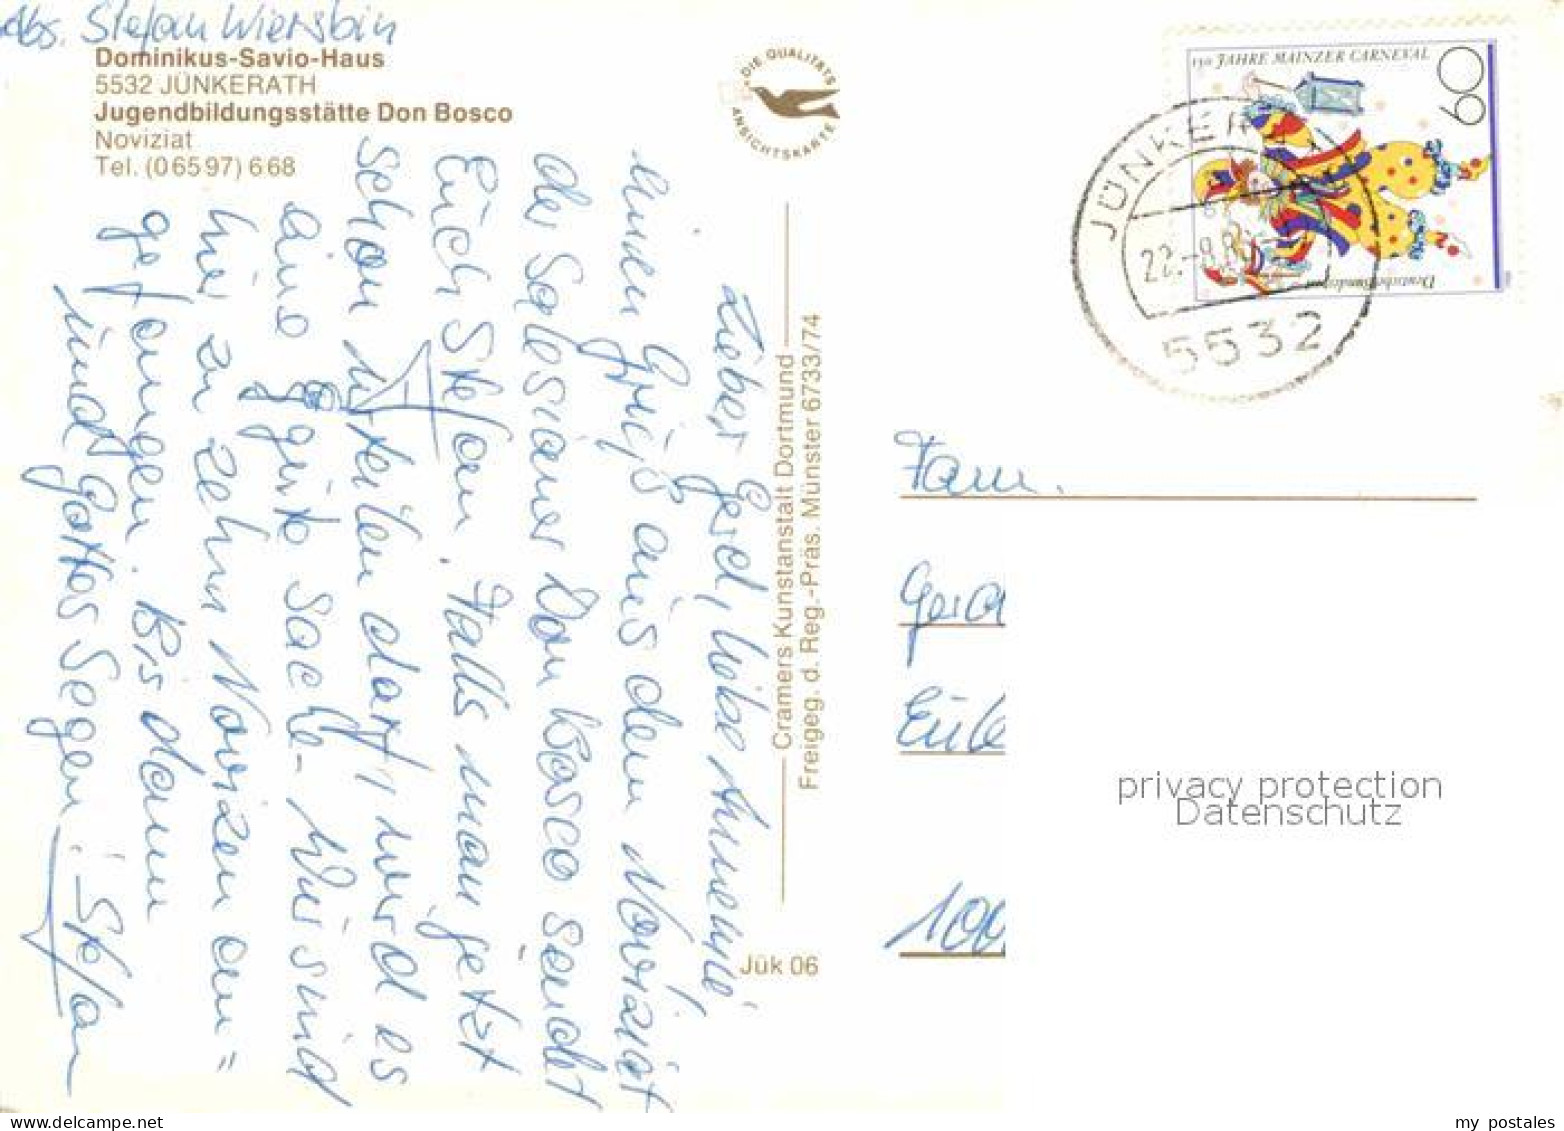 Abs. Stefan Wiersbin
Dominikus-Savio-Haus
5532 JÜNKERATH
Jugendbildungsstätte Don Bosco
Noviziat
Tel. (06597) 668
Lieber Gerd, liebe Annemie,
einen Gruß aus dem Noviziat
der Salesianer Don Bosco sendet
Euch Stefan. Falls man jetzt
schon urteilen darf, wird es
eine gute Sache. Wir sind
hier zu zehn Novizen an=
gefangen. Bis dann
und Gottes Segen! Stefan
DIE QUALITÄTS
ANSICHTSKARTE
Cramers Kunstanstalt Dortmund
Freigeg. d. Reg.-Präs. Münster 6733/74
Jük 06
150 JAHRE MAINZER CARNEVAL
60
Deutsche Bundespost
JÜNKERATH
5532
Fam.
privacy protection
Datenschutz
my postales